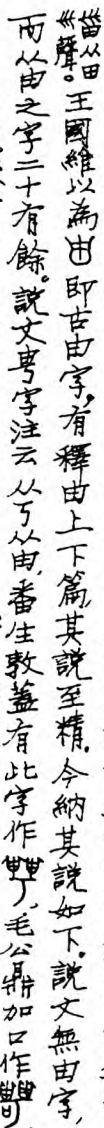 甾从田巛聲。王國維以為由即古由字。有釋由上下篇，其說至精。今納其說如下。說文無由字，
而从由之字二十有餘。說文甹字注云从丂从由，番生敦蓋有此字作，毛公鼎加口作